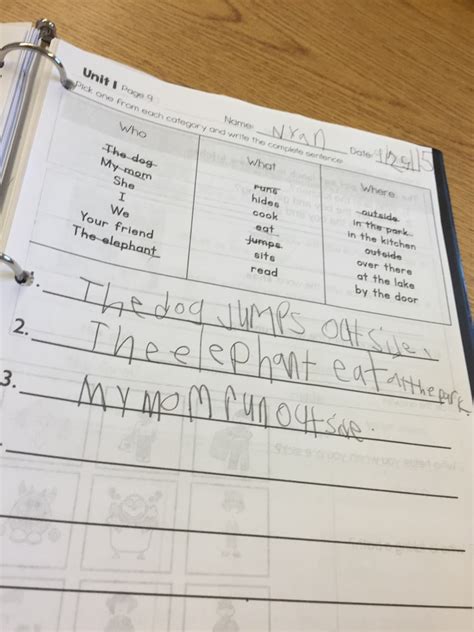 Unit 1 Page 9
Name: Date: 9/29/15
Pick one from each category and write the complete sentence.
Who
The dog
My mom
She
I
We
Your friend
The elephant
What
runs
hides
cook
eat
jumps
sits
read
Where
outside
in the park
in the kitchen
outside
over there
at the lake
by the door
1. The dog JUMPS outside.
2. The elephant eat at the park.
3. MY MOM run outside.